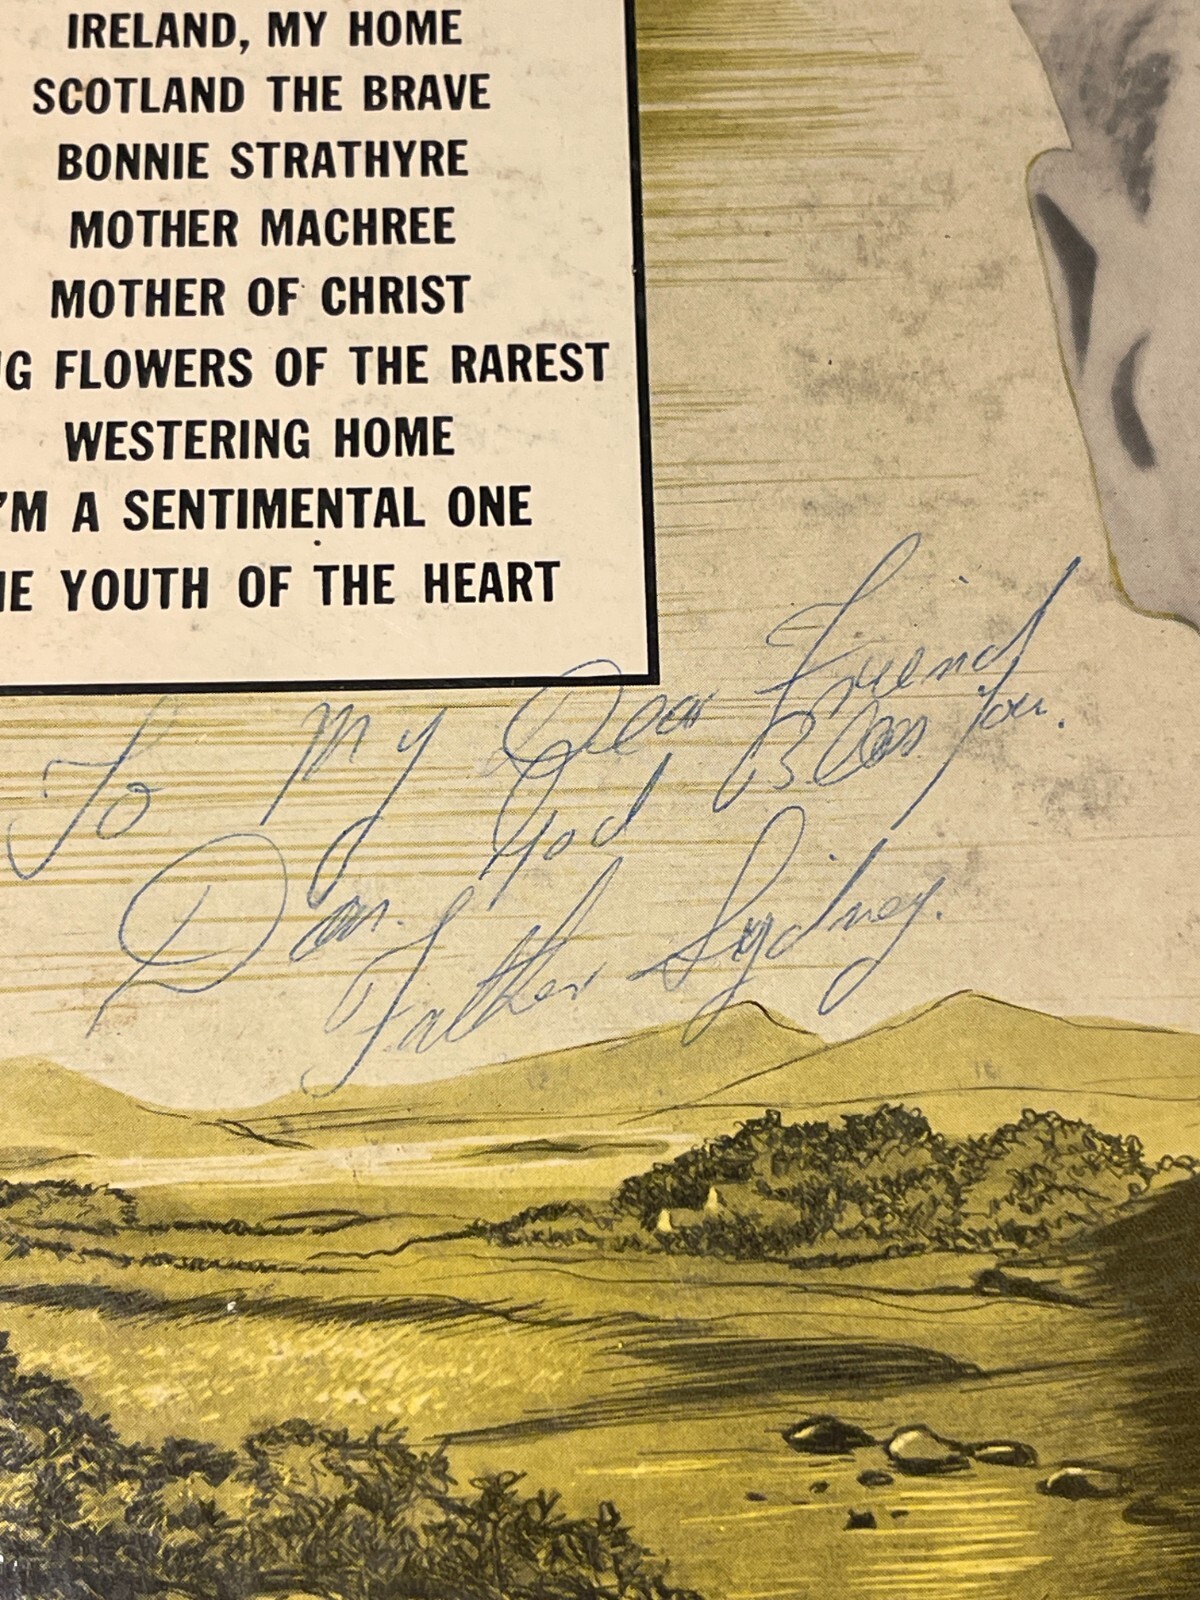 IRELAND, MY HOME
SCOTLAND THE BRAVE
BONNIE STRATHYRE
MOTHER MACHREE
MOTHER OF CHRIST
G FLOWERS OF THE RAREST
WESTERING HOME
'M A SENTIMENTAL ONE
E YOUTH OF THE HEART
To My Dear Friend
Dan. God Bless You.
Father Sydney.